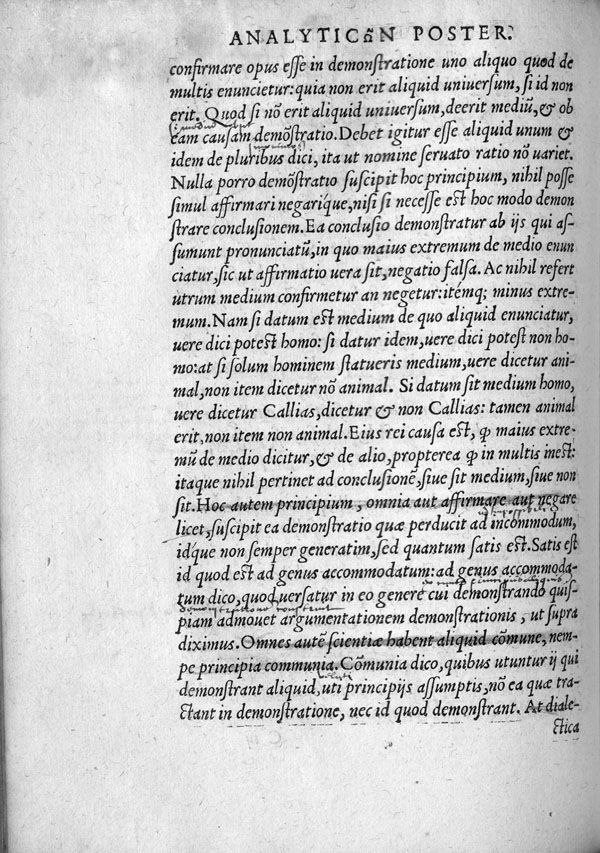 ANALYTICῶN POSTER.
confirmare opus esse in demonstratione uno aliquo quod de
multis enuncietur: quia non erit aliquid universum, si id non
erit. Quod si nō erit aliquid universum, deerit mediū, & ob
eam causam demōstratio. Debet igitur esse aliquid unum &
idem de pluribus dici, ita ut nomine servato ratio nō variet.
Nulla porro demōstratio suscipit hoc principium, nihil posse
simul affirmari negaríque, nisi si necesse est hoc modo demon
strare conclusionem. Ea conclusio demonstratur ab ijs qui as-
sumunt pronunciatū, in quo maius extremum de medio enun
ciatur, sic ut affirmatio uera sit, negatio falsa. Ac nihil refert
utrum medium confirmetur an negetur: itémq; minus extre-
mum. Nam si datum est medium de quo aliquid enunciatur,
uere dici potest homo: si datur idem, uere dici potest non ho-
mo: at si solum hominem statueris medium, uere dicetur ani-
mal, non item dicetur nō animal. Si datum sit medium homo,
uere dicetur Callias, dicetur & non Callias: tamen animal
erit, non item non animal. Eius rei causa est, ꝙ maius extre-
mū de medio dicitur, & de alio, propterea ꝙ in multis inest:
itaque nihil pertinet ad conclusionē, siue sit medium, siue non
sit. Hoc autem principium, omnia aut affirmare aut negare
licet, suscipit ea demonstratio quæ perducit ad incommodum,
id́que non semper generatim, sed quantum satis est. Satis est
id quod est ad genus accommodatum: ad genus accommoda-
tum dico, quod uersatur in eo genere cui demonstrando quis-
piam admouet argumentationem demonstrationis, ut supra
diximus. Omnes autē scientiæ habent aliquid cōmune, nem-
pe principia communia. Cōmunia dico, quibus utuntur ij qui
demonstrant aliquid, uti principijs assumptis, nō ea quæ tra-
ctant in demonstratione, nec id quod demonstrant. At diale-
ctica